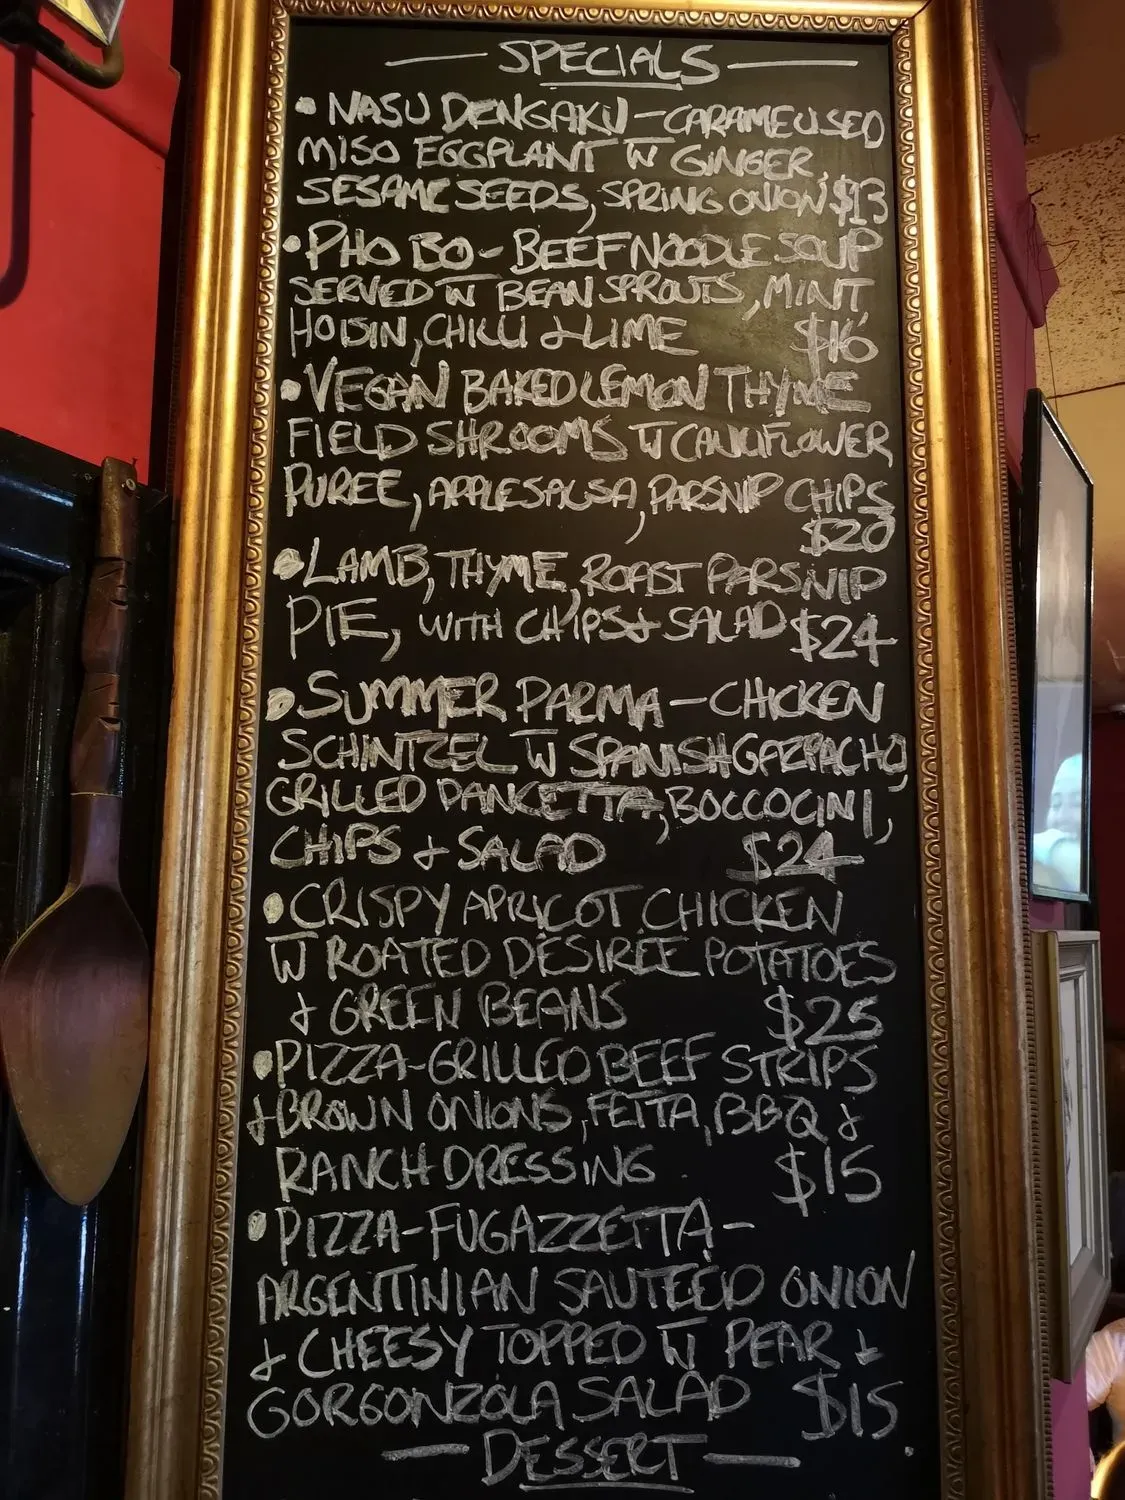 SPECIALS
• NASU DENGAKU - CARAMELISED
MISO EGGPLANT W GINGER,
SESAME SEEDS, SPRING ONION $13
• PHO BO - BEEF NOODLE SOUP
SERVED W BEAN SPROUTS, MINT,
HOISIN, CHILLI & LIME $16
• VEGAN BAKED LEMON THYME
FIELD SHROOMS W CAULIFLOWER
PUREE, APPLE SALSA, PARSNIP CHIPS
$20
• LAMB, THYME, ROAST PARSNIP
PIE, WITH CHIPS & SALAD $24
• SUMMER PARMA - CHICKEN
SCHINTZEL W SPANISH GAZPACHO,
GRILLED PANCETTA, BOCCOCINI,
CHIPS & SALAD $24
• CRISPY APRICOT CHICKEN
W ROATED DESIREE POTATOES
& GREEN BEANS $25
• PIZZA - GRILLED BEEF STRIPS
& BROWN ONIONS, FETTA, BBQ &
RANCH DRESSING $15
• PIZZA - FUGAZZETTA -
ARGENTINIAN SAUTEED ONION
& CHEESY TOPPED W PEAR &
GORGONZOLA SALAD $15
DESSERT